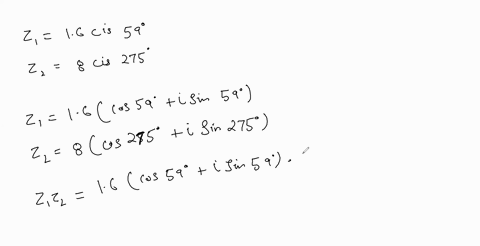 z₁ = 1.6 cis 59°
z₂ = 8 cis 275°
z₁ = 1.6 (cos 59° + i sin 59°)
z₂ = 8 (cos 275° + i sin 275°)
z₁z₂ = 1.6 (cos 59° + i sin 59°) .